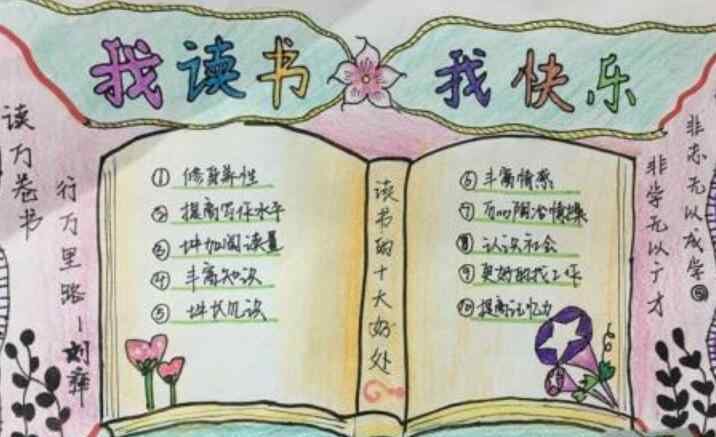 我读书 我快乐
读万卷书
行万里路—刘彝
读书的十大好处
① 修身养性
② 提高写作水平
③ 增加阅读量
④ 丰富知识
⑤ 增长见识
⑥ 丰富情感
⑦ 可以陶冶情操
⑧ 认识社会
⑨ 更好的找工作
⑩ 提高记忆力
非志无以成学
非学无以广才